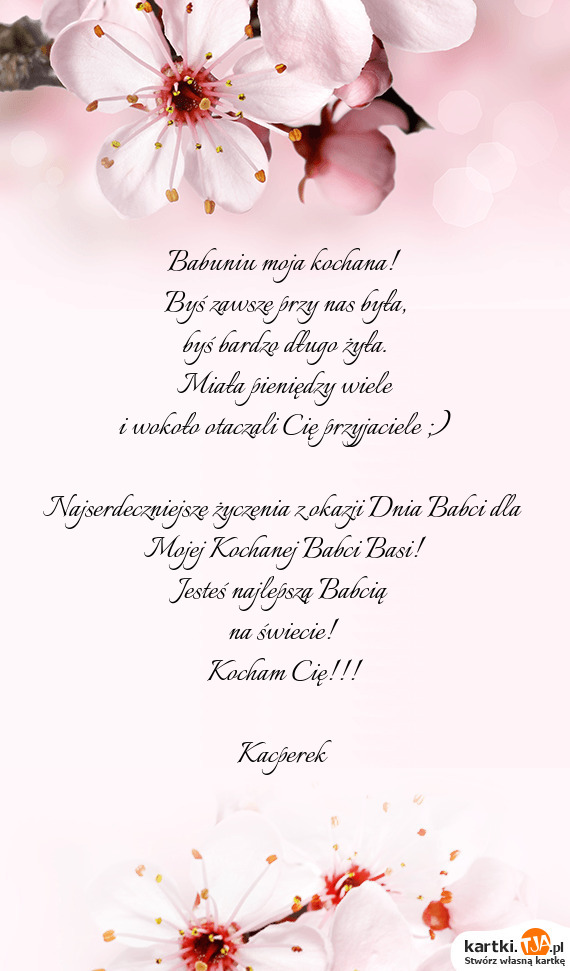 Babuniu moja kochana!
Byś zawsze przy nas była,
byś bardzo długo żyła.
Miała pieniędzy wiele
i wokoło otaczali Cię przyjaciele ;)
Najserdeczniejsze życzenia z okazji Dnia Babci dla
Mojej Kochanej Babci Basi!
Jesteś najlepszą Babcią
na świecie!
Kocham Cię!!!
Kacperek
kartki.TJA.pl
Stwórz własną kartkę